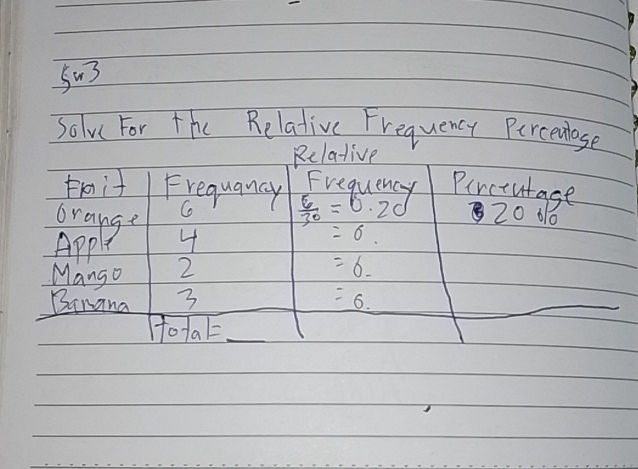 Sw3
Solve For the Relative Frequency Percentage
Relative
Fruit Frequancy Frequency Percentage
Orange 6 6/30 = 0.20 20 %
Apple 4 = 0.
Mango 2 = 0.
Banana 3 = 0.
Total=